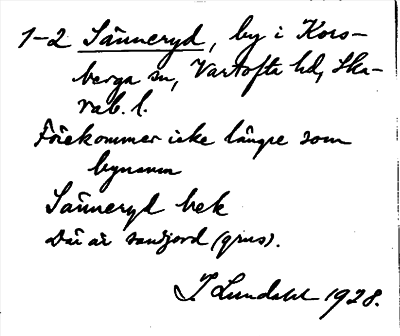 1-2 Sänneryd, by i Kors-
berga sn, Vartofta hd, Ska-
rab. l.
Förekommer icke längre som
bynamn
Sänneryd bek
Där är sandjord (grus).
I Lundahl 1928.